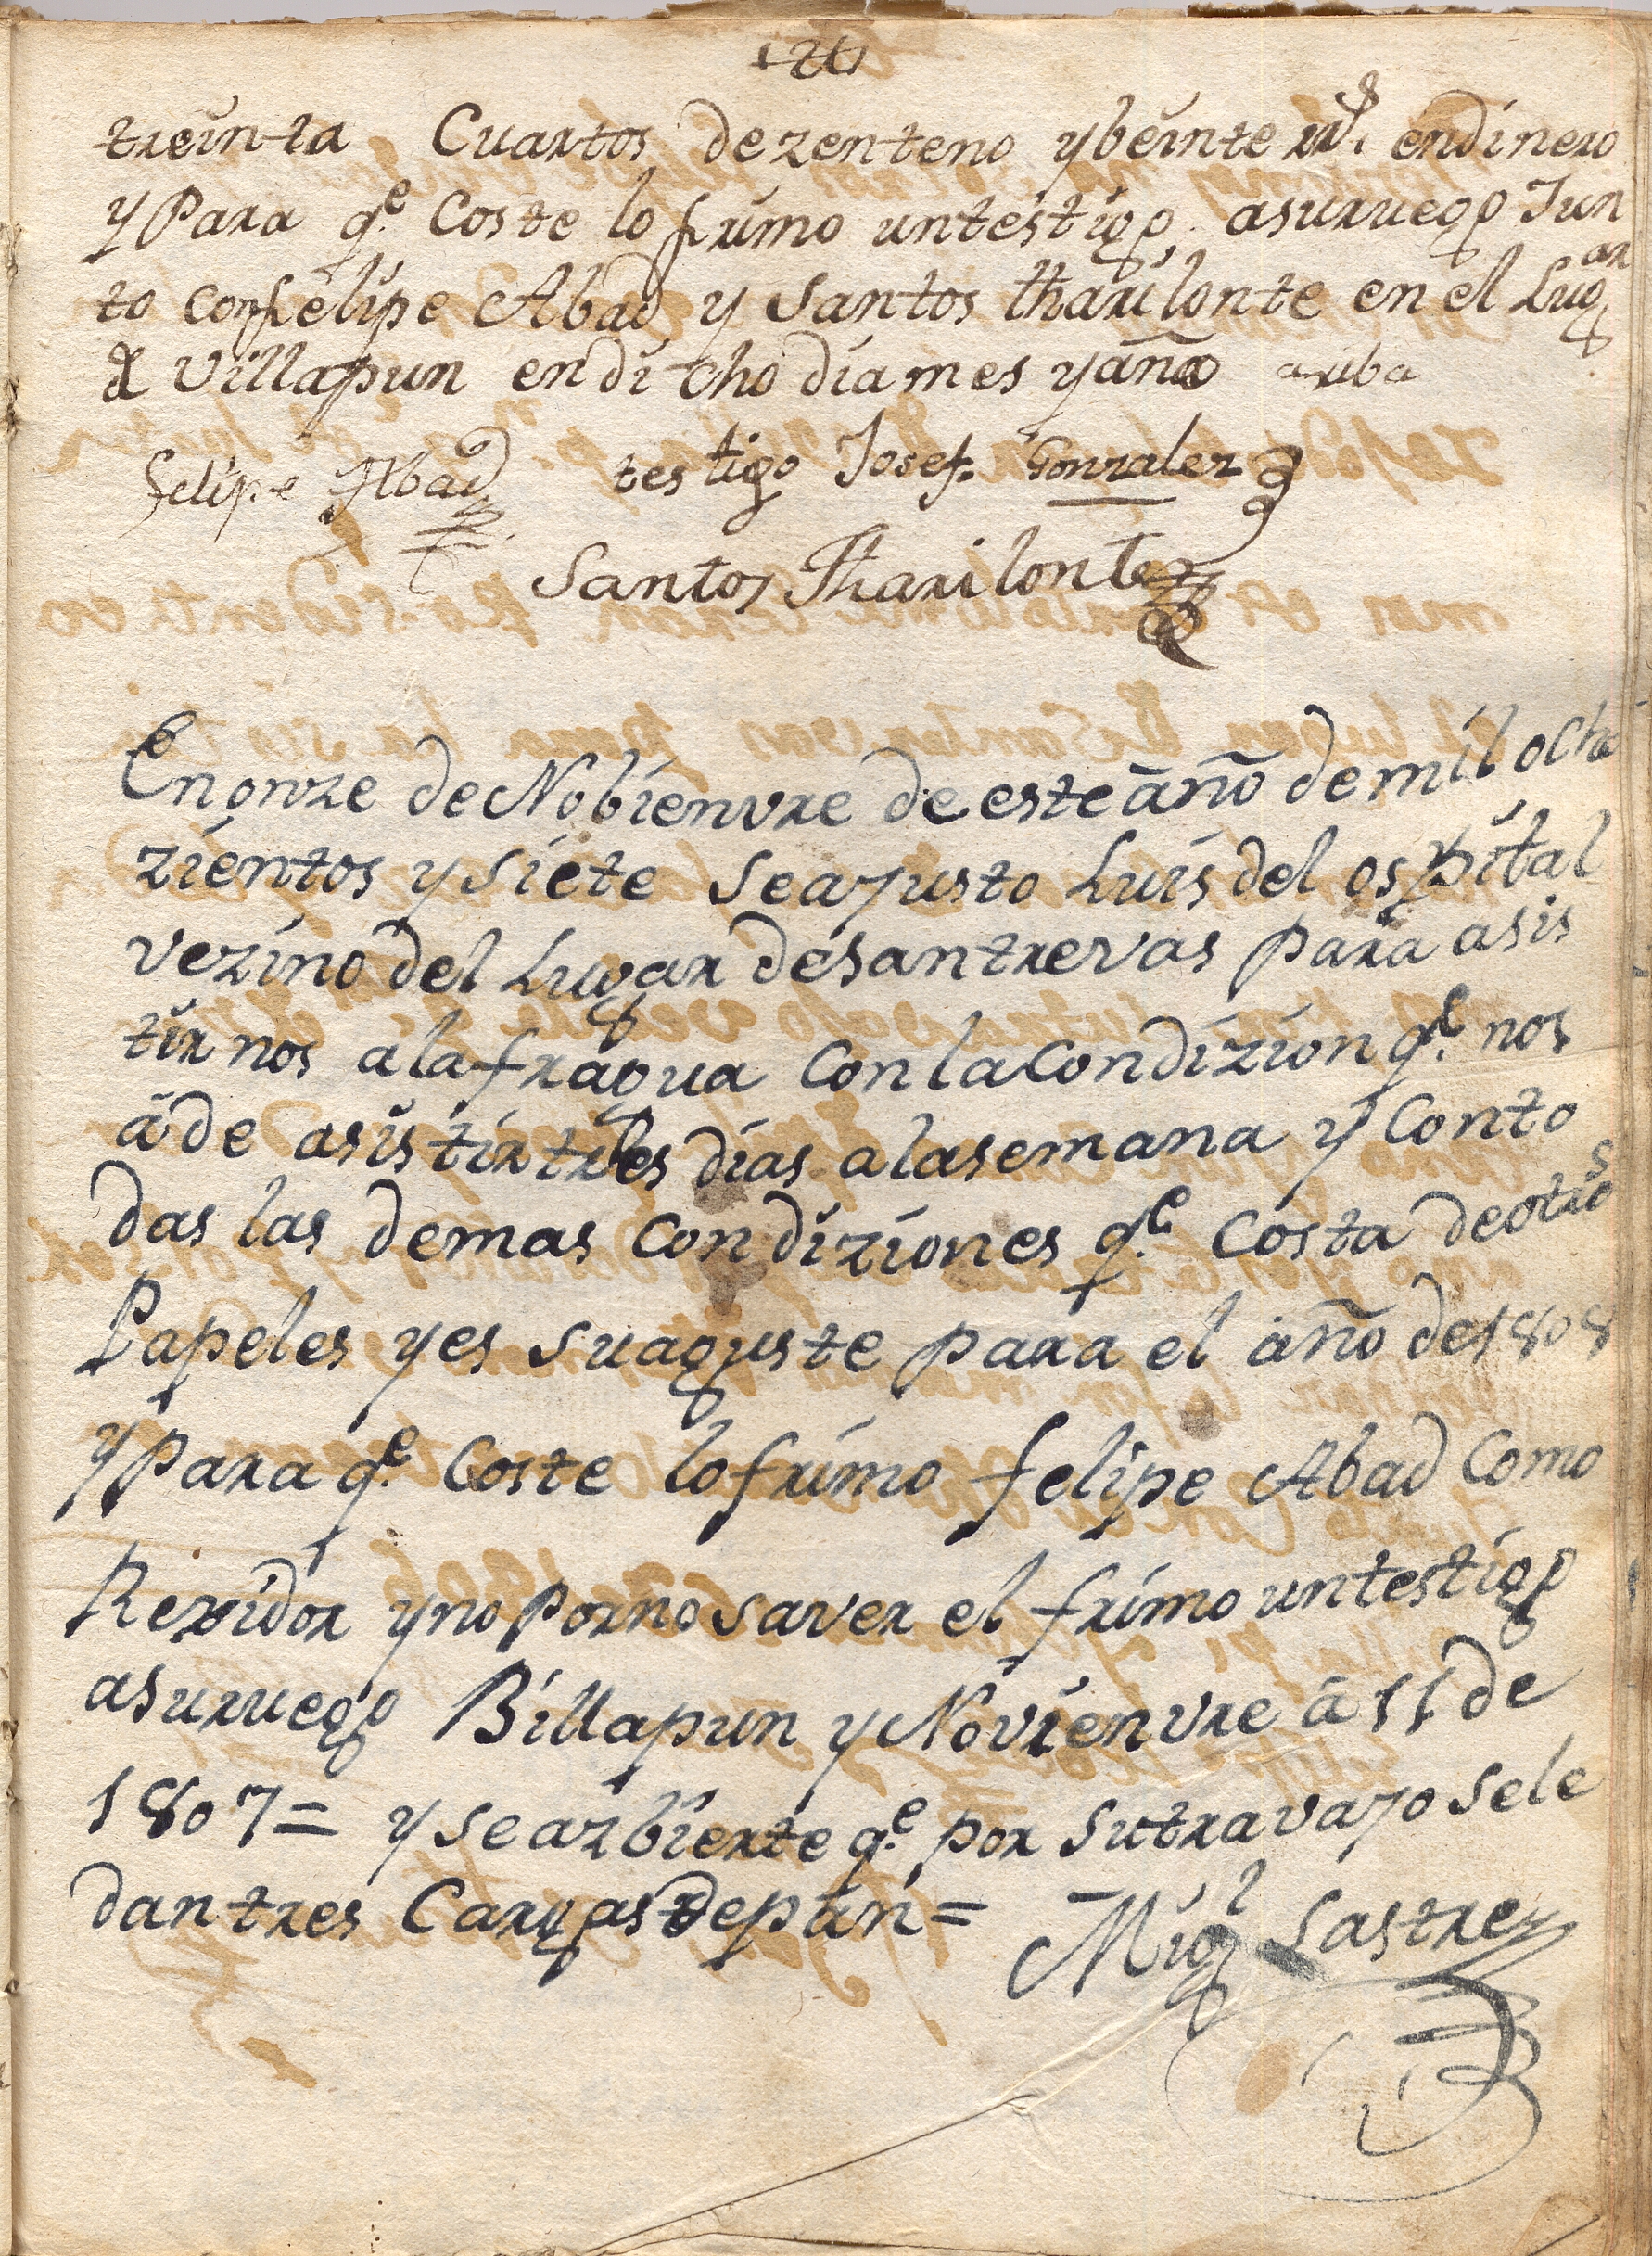 treinta Cuartos dezenteno ybeinte rrs. endinero
y Para qe. Coste lo frimo untestigo asurruego Jun
to con felipe Abad y Santos tharilonte en el Lugar
de Villapun endi cho dia mes y año ariba
felipe Abad testigo Josef Gonzalez
Santos Tharilonte
En onze de Nobienvre de este año de mil ocho
zientos y siete se ajusto Luis del ospital
vezino del Lugar desantrervas para asis
tirnos ala fragua Con la Condizion qe. nos
á de asistir tres dias alasemana y Conto
das las demas Condiziones qe. Costa deotros
Papeles yes suaguste para el año de 1808
y Para qe. Coste lo frimo felipe Abad Como
Rexidor yno Porno saver el frimo untestigo
asurruego Billapun y Novienvre á 11 de
1807 = y se azbierte qe. por Sutravajo sele
dan tres Cargas depan = Migl Sastre